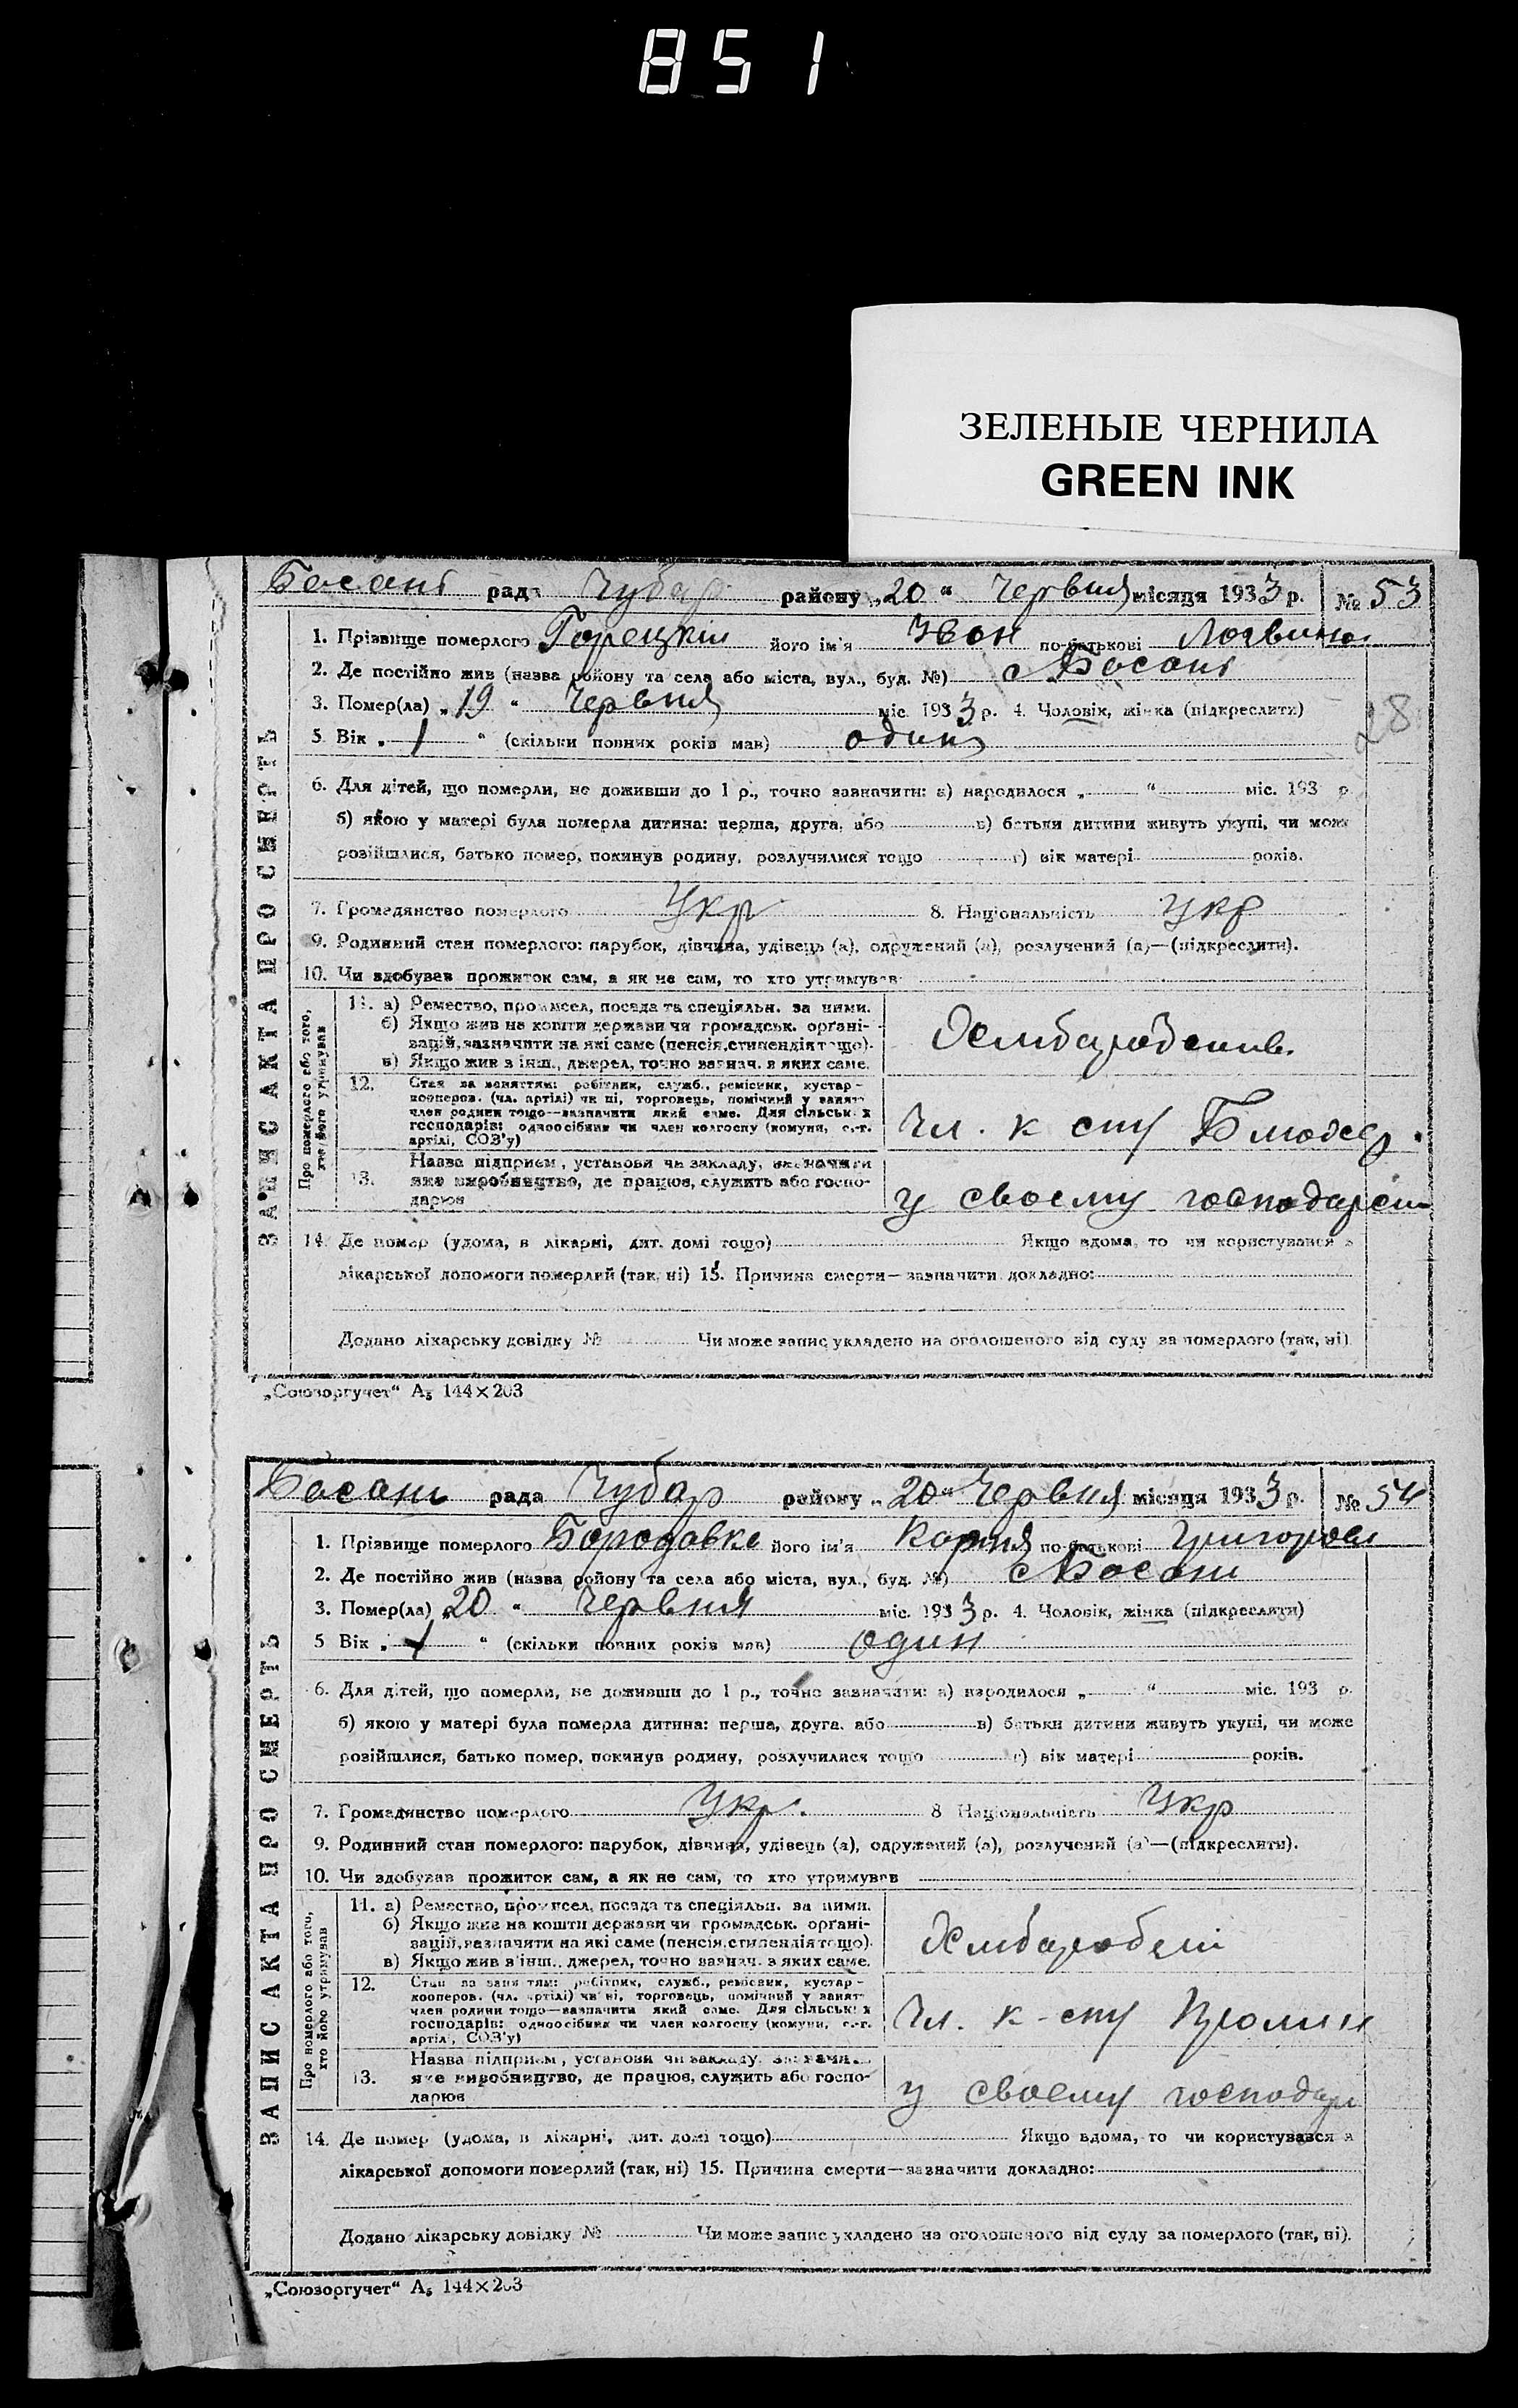 851
ЗЕЛЕНЫЕ ЧЕРНИЛА
GREEN INK
Босані рада Чубар району „20“ Червня місяця 1933 р. № 53
ЗАПИС АКТА ПРО СМЕРТЬ
1. Прізвище померлого Горецкій його ім'я Іван по-батькові
2. Де постійно жив (назва району та села або міста, вул., буд. №) с Босані
28
3. Помер(ла) „19“ Червня міс. 1933 р. 4. Чоловік, жінка (підкреслити)
5 Вік „1“ (скільки повних років мав) один
6. Для дітей, що померли, не доживши до 1 р., точно зазначити: а) народилося „ “ міс. 193 р.
б) якою у матері була померла дитина: перша, друга, або в) батьки дитини живуть укупі, чи може
розійшлися, батько помер, покинув родину, розлучилися тощо г) вік матері років.
7. Громадянство померлого Укр 8. Національність Укр
9. Родинний стан померлого: парубок, дівчина, удівець (а), одружений (а), розлучений (а)—(підкреслити).
10. Чи здобував прожиток сам, а як не сам, то хто утримував
Про померлого або того, хто його утримував
11. а) Ремество, промисел, посада та спеціяльн. за ними.
б) Якщо жив на кошти держави чи громадськ. органі-
зацій, зазначити на які саме (пенсія, стипендія тощо).
в) Якщо жив з інш. джерел, точно зазнач. з яких саме.
12. Стан за заняттям: робітник, служб., ремісник, кустар-
кооперов. (чл. артілі) чи ні, торговець, помічний у занят.
член родини тощо—зазначити який саме. Для сільськ. х
господарів: одноосібник чи член колгоспу (комуни, с.-г.
артілі, СОЗ'у)
Чл. к спу
13. Назва підприєм., установи чи закладу, зазначити
яке виробництво, де працює, служить або госпо-
дарює
у своему господарст
14. Де помер (удома, в лікарні, дит. домі тощо) Якщо вдома, то чи користувався з
лікарської допомоги померлий (так, ні) 15. Причина смерти—зазначити докладно:
Додано лікарську довідку № Чи може запис укладено на оголошеного від суду за померлого (так, ні)
„Союзоргучет“ А₅ 144×203
Босані рада Чубар району „20“ Червня місяця 1933 р. № 54
ЗАПИС АКТА ПРО СМЕРТЬ
1. Прізвище померлого Бородавка його ім'я по-батькові Григоров
2. Де постійно жив (назва району та села або міста, вул., буд. №) с Босані
3. Помер(ла) „20“ Червня міс. 1933 р. 4. Чоловік, жінка (підкреслити)
5 Вік „1“ (скільки повних років мав) один
6. Для дітей, що померли, не доживши до 1 р., точно зазначити: а) народилося „ “ міс. 193 р.
б) якою у матері була померла дитина: перша, друга, або в) батьки дитини живуть укупі, чи може
розійшлися, батько помер, покинув родину, розлучилися тощо г) вік матері років.
7. Громадянство померлого Укр. 8 Національність Укр
9. Родинний стан померлого: парубок, дівчина, удівець (а), одружений (а), розлучений (а)—(підкреслити).
10. Чи здобував прожиток сам, а як не сам, то хто утримував
Про померлого або того, хто його утримував
11. а) Ремество, промисел, посада та спеціяльн. за ними.
б) Якщо жив на кошти держави чи громадськ. органі-
зацій, зазначити на які саме (пенсія, стипендія тощо).
в) Якщо жив з інш. джерел, точно зазнач. з яких саме.
12. Стан за заняттям: робітник, служб., ремісник, кустар-
кооперов. (чл. артілі) чи ні, торговець, помічний у занят.
член родини тощо—зазначити який саме. Для сільськ. х
господарів: одноосібник чи член колгоспу (комуни, с.-г.
артілі, СОЗ'у)
Чл. к-спу
13. Назва підприєм., установи чи закладу, зазначити
яке виробництво, де працює, служить або госпо-
дарює
у своему господар
14. Де помер (удома, в лікарні, дит. домі тощо) Якщо вдома, то чи користувався з
лікарської допомоги померлий (так, ні) 15. Причина смерти—зазначити докладно:
Додано лікарську довідку № Чи може запис укладено на оголошеного від суду за померлого (так, ні).
„Союзоргучет“ А₅ 144×203